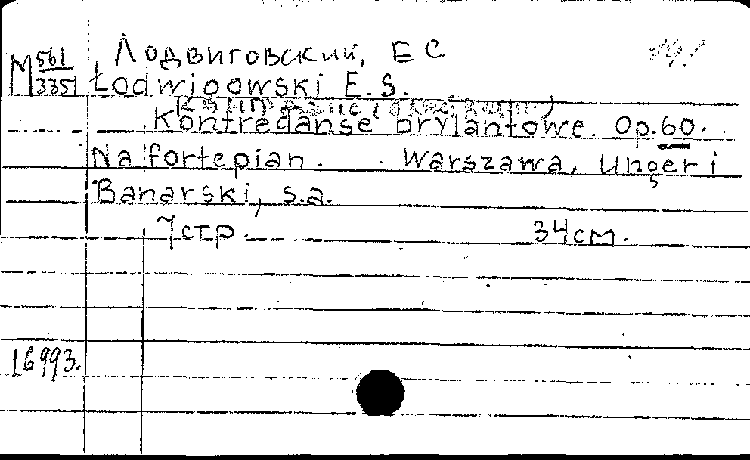 Лодвиговский, Е С
М 561/3351 Łodwigowski E. S.
Kontredanse brylantowe. Op.60.
Na fortepian. Warszawa, Unger i
Banarski, s.a.
7 стр. 34 см.
16993.